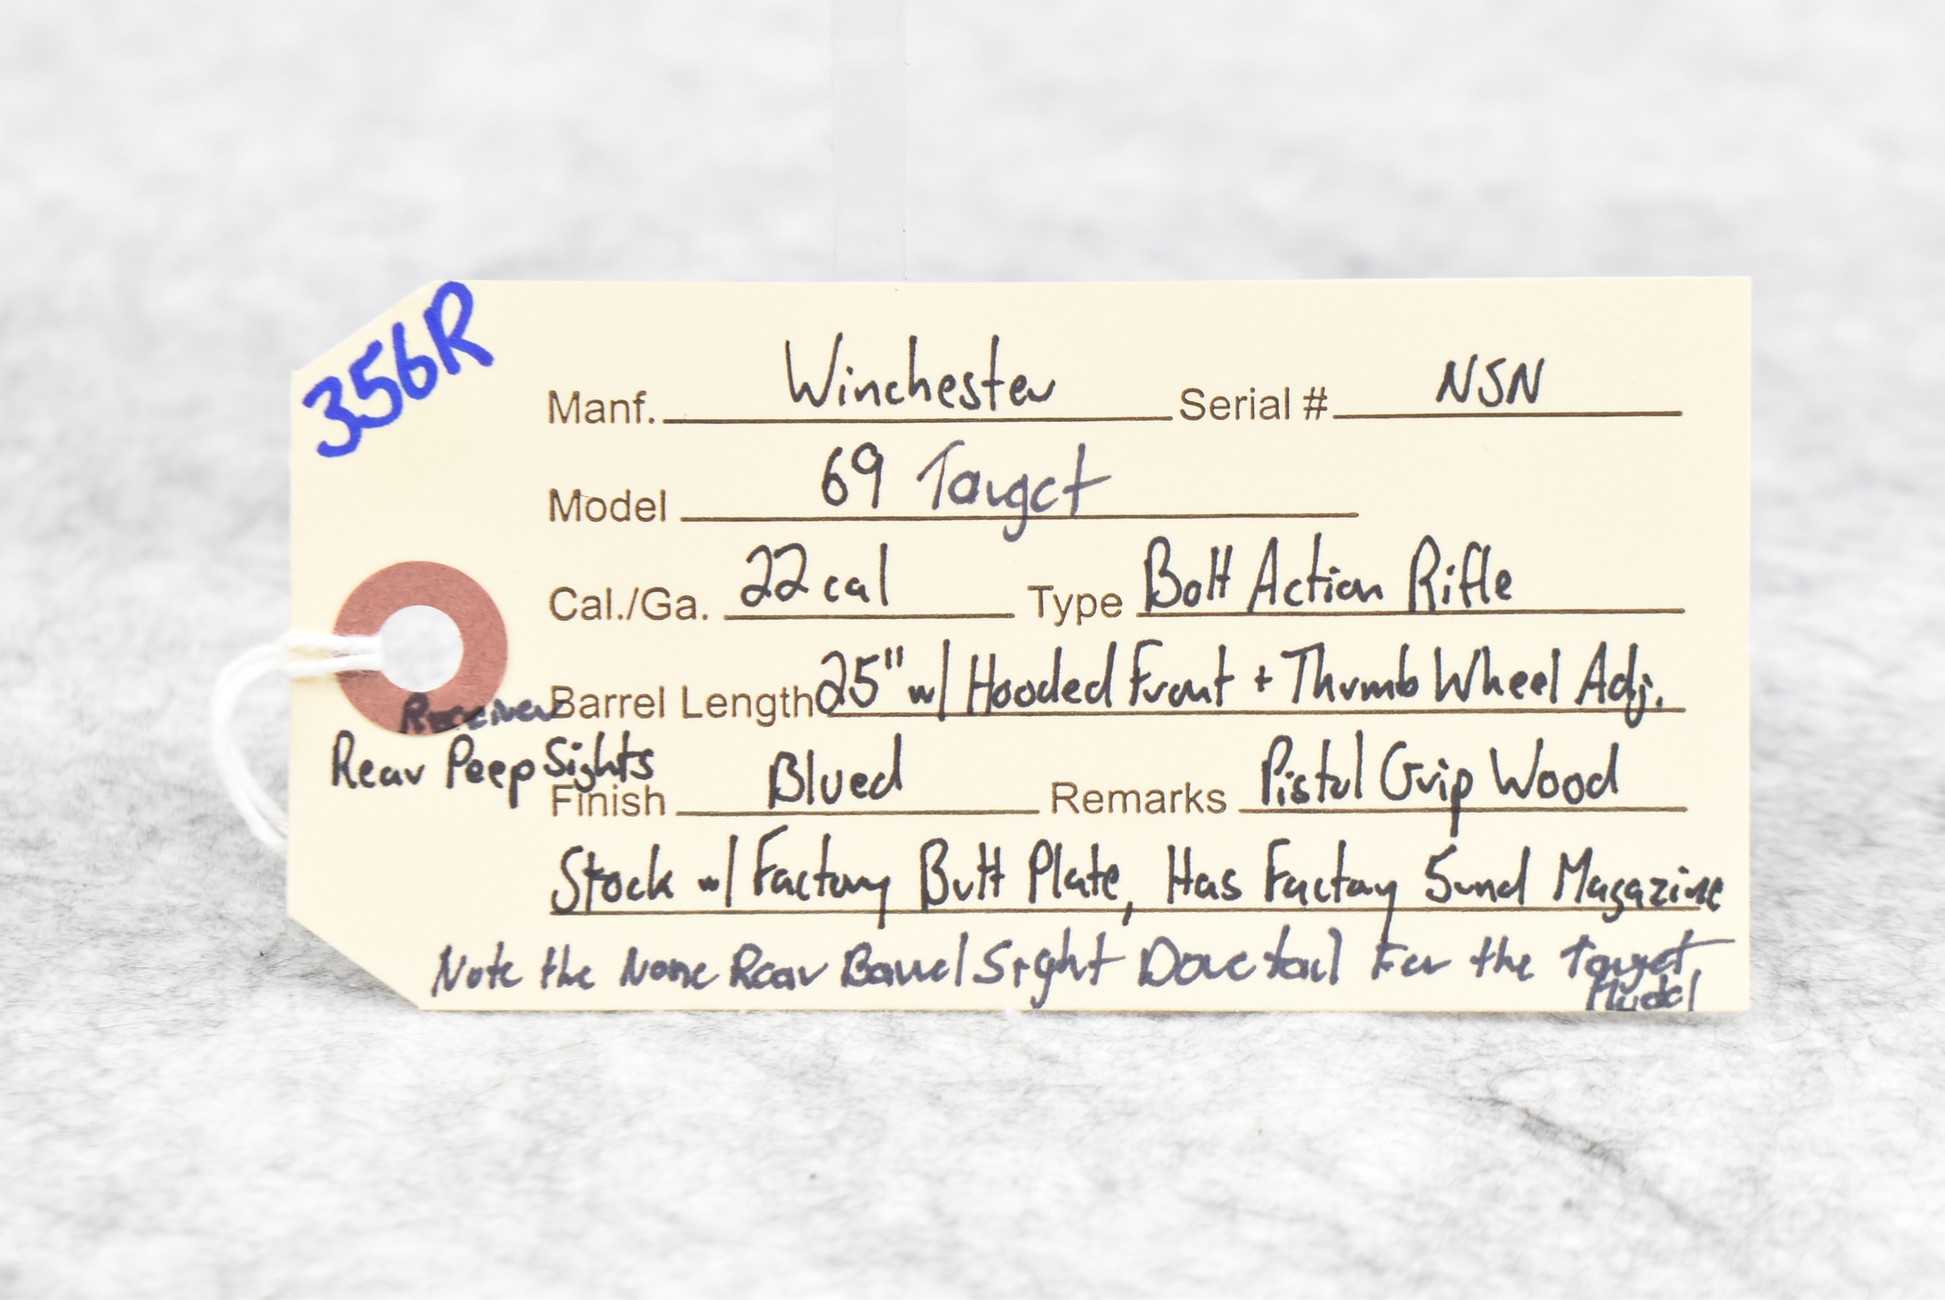 356R
Manf. Winchester Serial # NSN
Model 69 Target
Cal./Ga. 22 cal Type Bolt Action Rifle
Barrel Length 25" w/ Hooded Front + Thumb Wheel Adj.
Receiver
Rear Peep Sights
Finish Blued Remarks Pistol Grip Wood
Stock w/ Factory Butt Plate, Has Factory 5rnd Magazine
Note the None Rear Barrel Sight Dovetail For the Target
Model